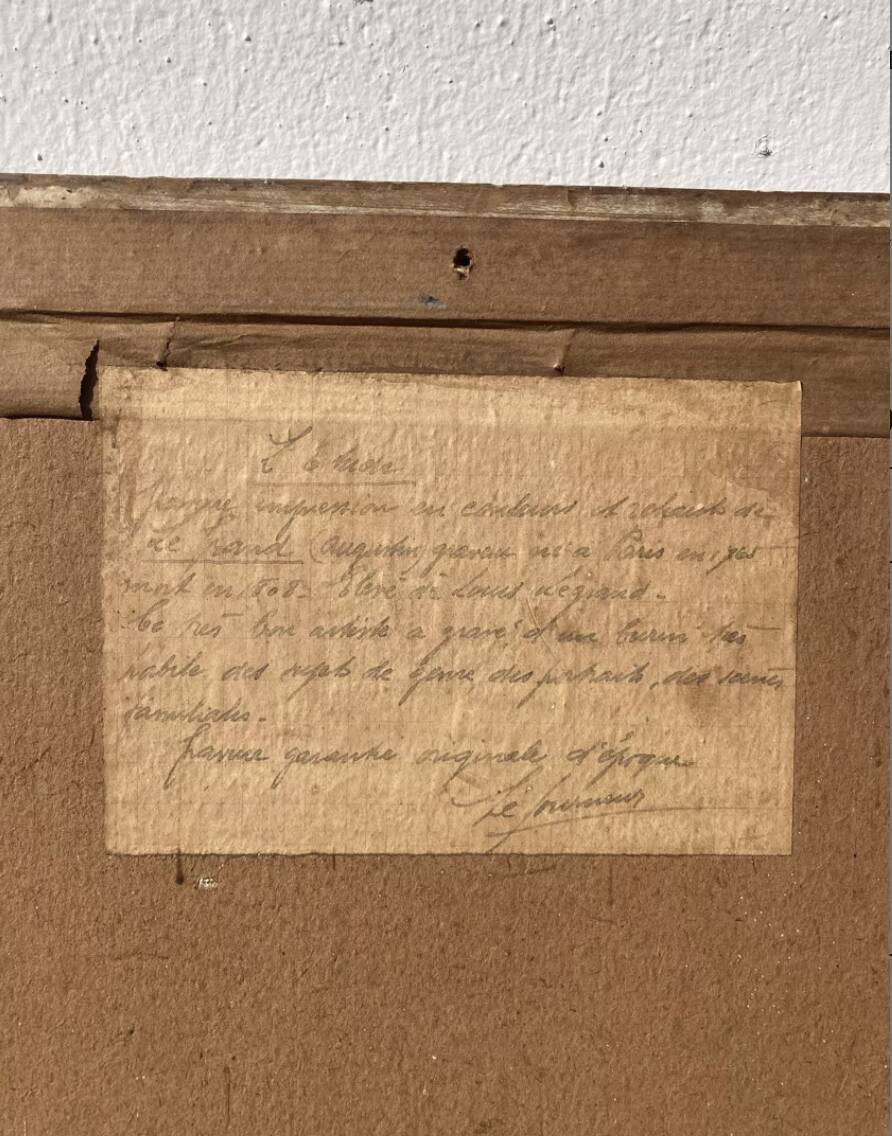 L'Etude
impression en couleurs et rehauts de
Le Grand (Augustin) graveur né à Paris en 1765
mort en 1808. Elève de Louis Legrand.
Ce très bon artiste a gravé d'un burin très
habile des sujets de genre, des portraits, des scènes
familiales.
Gravure garantie originale d'époque